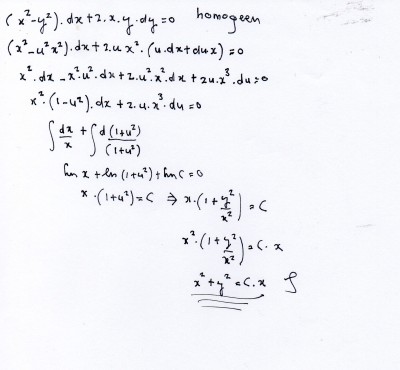 (x²-y²).dx+2.x.y.dy=0 homogeen
(x²-u²x²).dx+2.u x².(u.dx+dux)=0
x².dx-x².u².dx+2.u².x².dx+2u.x³.du=0
x².(1-u²).dx+2.u.x³.du=0
∫dx/x+∫d(1+u²)/(1+u²)
ln x+ln(1+u²)+lnC=0
x.(1+u²)=C ⇒ x.(1+y²/x²)=C
x².(1+y²/x²)=C.x
x²+y²=C.x